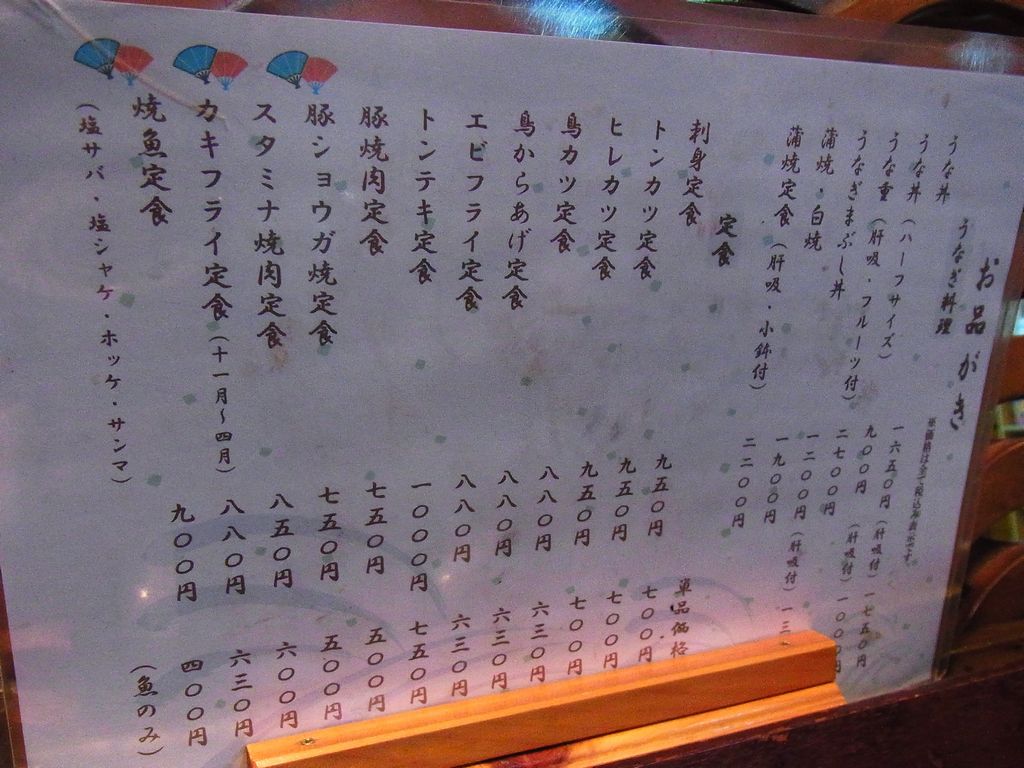 お品がき
※価格は全て税込み表示です。
うなぎ料理
うな丼 一六五〇円 (肝吸付)一七五〇円
うな丼(ハーフサイズ) 九〇〇円 (肝吸付)一〇〇〇円
うな重(肝吸・フルーツ付) 二七〇〇円
うなぎまぶし丼 一二〇〇円 (肝吸付)一三
蒲焼・白焼 一九〇〇円
蒲焼定食(肝吸・小鉢付) 二二〇〇円
定食 単品価格
刺身定食 九五〇円 七〇〇円
トンカツ定食 九五〇円 七〇〇円
ヒレカツ定食 九五〇円 七〇〇円
鳥カツ定食 八八〇円 六三〇円
鳥からあげ定食 八八〇円 六三〇円
エビフライ定食 八八〇円 六三〇円
トンテキ定食 一〇〇〇円 七五〇円
豚焼肉定食 七五〇円 五〇〇円
豚ショウガ焼定食 七五〇円 五〇〇円
スタミナ焼肉定食 八五〇円 六〇〇円
カキフライ定食(十一月~四月) 八八〇円 六三〇円
焼魚定食 九〇〇円 四〇〇円
(塩サバ・塩シャケ・ホッケ・サンマ) (魚のみ)